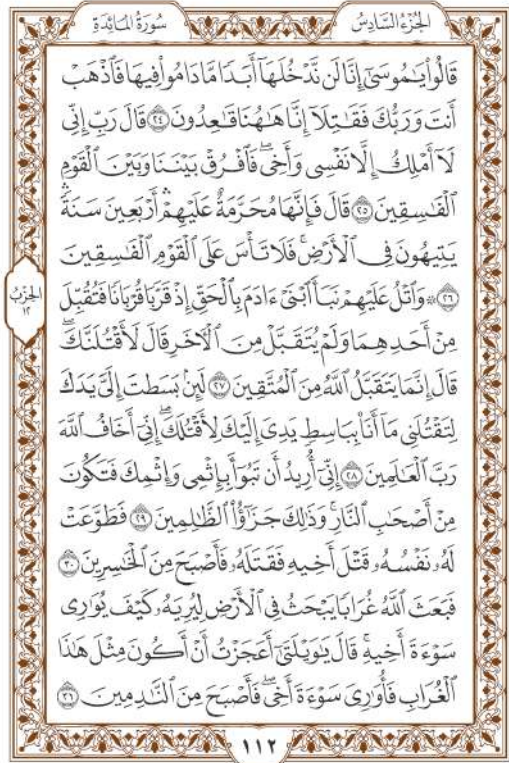 سُورَةُ المَائـِدَةِ
الجُزْءُ السَّادِسُ
قَالُواْ يَٰمُوسَىٰٓ إِنَّا لَن نَّدۡخُلَهَآ أَبَدٗا مَّا دَامُواْ فِيهَا فَٱذۡهَبۡ
أَنتَ وَرَبُّكَ فَقَٰتِلَآ إِنَّا هَٰهُنَا قَٰعِدُونَ ٢٤ قَالَ رَبِّ إِنِّي
لَآ أَمۡلِكُ إِلَّا نَفۡسِي وَأَخِيۖ فَٱفۡرُقۡ بَيۡنَنَا وَبَيۡنَ ٱلۡقَوۡمِ
ٱلۡفَٰسِقِينَ ٢٥ قَالَ فَإِنَّهَا مُحَرَّمَةٌ عَلَيۡهِمۡۛ أَرۡبَعِينَ سَنَةٗۛ
يَتِيهُونَ فِي ٱلۡأَرۡضِۚ فَلَا تَأۡسَ عَلَى ٱلۡقَوۡمِ ٱلۡفَٰسِقِينَ
٢٦ ۞ وَٱتۡلُ عَلَيۡهِمۡ نَبَأَ ٱبۡنَيۡ ءَادَمَ بِٱلۡحَقِّ إِذۡ قَرَّبَا قُرۡبَانٗا فَتُقُبِّلَ
مِنۡ أَحَدِهِمَا وَلَمۡ يُتَقَبَّلۡ مِنَ ٱلۡأٓخَرِ قَالَ لَأَقۡتُلَنَّكَۖ
قَالَ إِنَّمَا يَتَقَبَّلُ ٱللَّهُ مِنَ ٱلۡمُتَّقِينَ ٢٧ لَئِنۢ بَسَطتَ إِلَيَّ يَدَكَ
لِتَقۡتُلَنِي مَآ أَنَا۠ بِبَاسِطٖ يَدِيَ إِلَيۡكَ لِأَقۡتُلَكَۖ إِنِّيٓ أَخَافُ ٱللَّهَ
رَبَّ ٱلۡعَٰلَمِينَ ٢٨ إِنِّيٓ أُرِيدُ أَن تَبُوٓأَ بِإِثۡمِي وَإِثۡمِكَ فَتَكُونَ
مِنۡ أَصۡحَٰبِ ٱلنَّارِۚ وَذَٰلِكَ جَزَٰٓؤُاْ ٱلظَّٰلِمِينَ ٢٩ فَطَوَّعَتۡ
لَهُۥ نَفۡسُهُۥ قَتۡلَ أَخِيهِ فَقَتَلَهُۥ فَأَصۡبَحَ مِنَ ٱلۡخَٰسِرِينَ ٣٠
فَبَعَثَ ٱللَّهُ غُرَابٗا يَبۡحَثُ فِي ٱلۡأَرۡضِ لِيُرِيَهُۥ كَيۡفَ يُوَٰرِي
سَوۡءَةَ أَخِيهِۚ قَالَ يَٰوَيۡلَتَىٰٓ أَعَجَزۡتُ أَنۡ أَكُونَ مِثۡلَ هَٰذَا
ٱلۡغُرَابِ فَأُوَٰرِيَ سَوۡءَةَ أَخِيۖ فَأَصۡبَحَ مِنَ ٱلنَّٰدِمِينَ ٣١
الحِزْبُ
١٢
١١٢